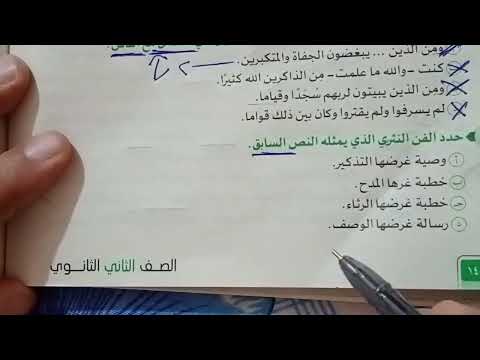 ومن الذين ... يبغضون الجفاة والمتكبرين.
كنت - والله ما علمت - من الذاكرين الله كثيرًا.
ومن الذين يبيتون لربهم سُجّدًا وقياما.
لم يسرفوا ولم يقتروا وكان بين ذلك قواما.
حدد الفن النثري الذي يمثله النص السابق.
أ وصية غرضها التذكير.
ب خطبة غرها المدح.
ج خطبة غرضها الرثاء.
د رسالة غرضها الوصف.
الصف الثاني الثانوي
١٤